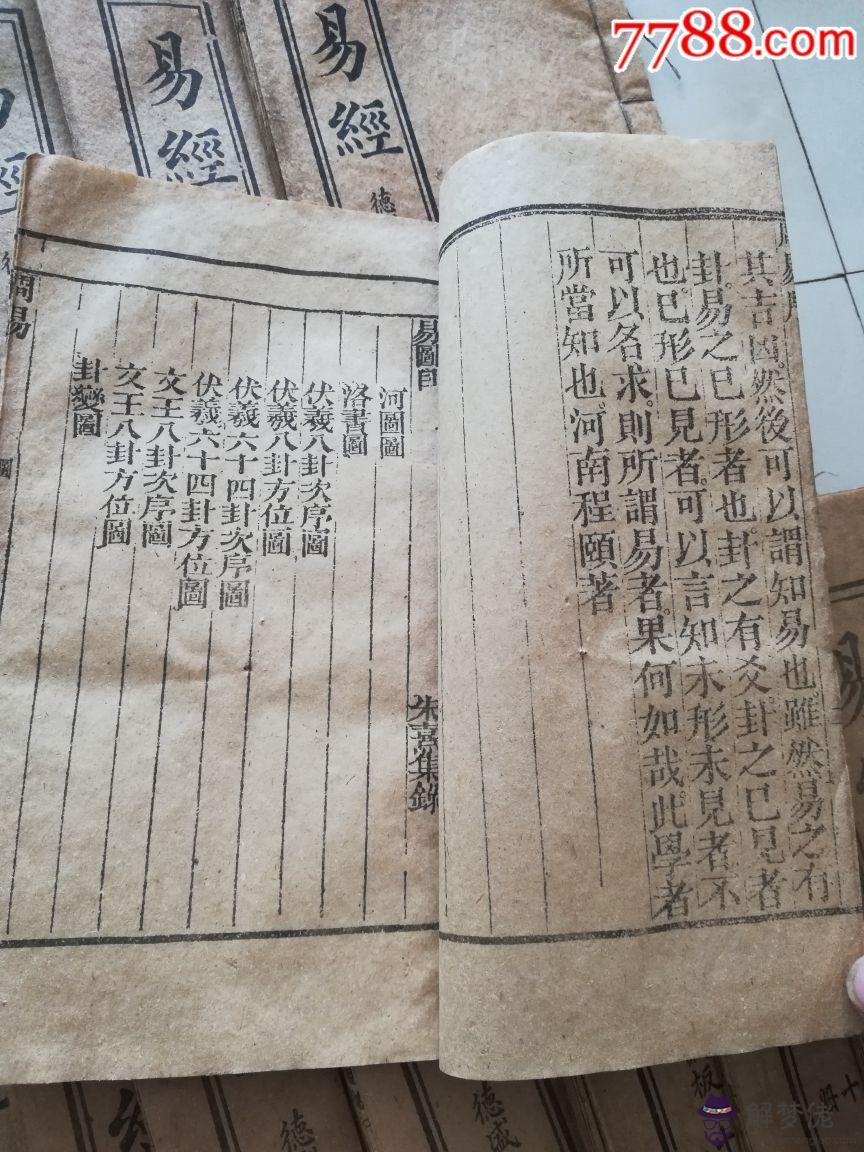 7788.com
易經
德
易經
易
經
周易序
其吉凶然後可以謂知易也雖然易之有
卦易之已形者也卦之有爻卦之已見者
也已形已見者可以言知未形未見者不
可以名求則所謂易者果何如哉此學者
所當知也河南程頤著
易圖目
朱熹集錄
河圖圖
洛書圖
伏羲八卦次序圖
伏羲八卦方位圖
伏羲六十四卦次序圖
伏羲六十四卦方位圖
文王八卦次序圖
文王八卦方位圖
卦變圖
周易
圖
易
經
德
德威
板
十册
解梦佬